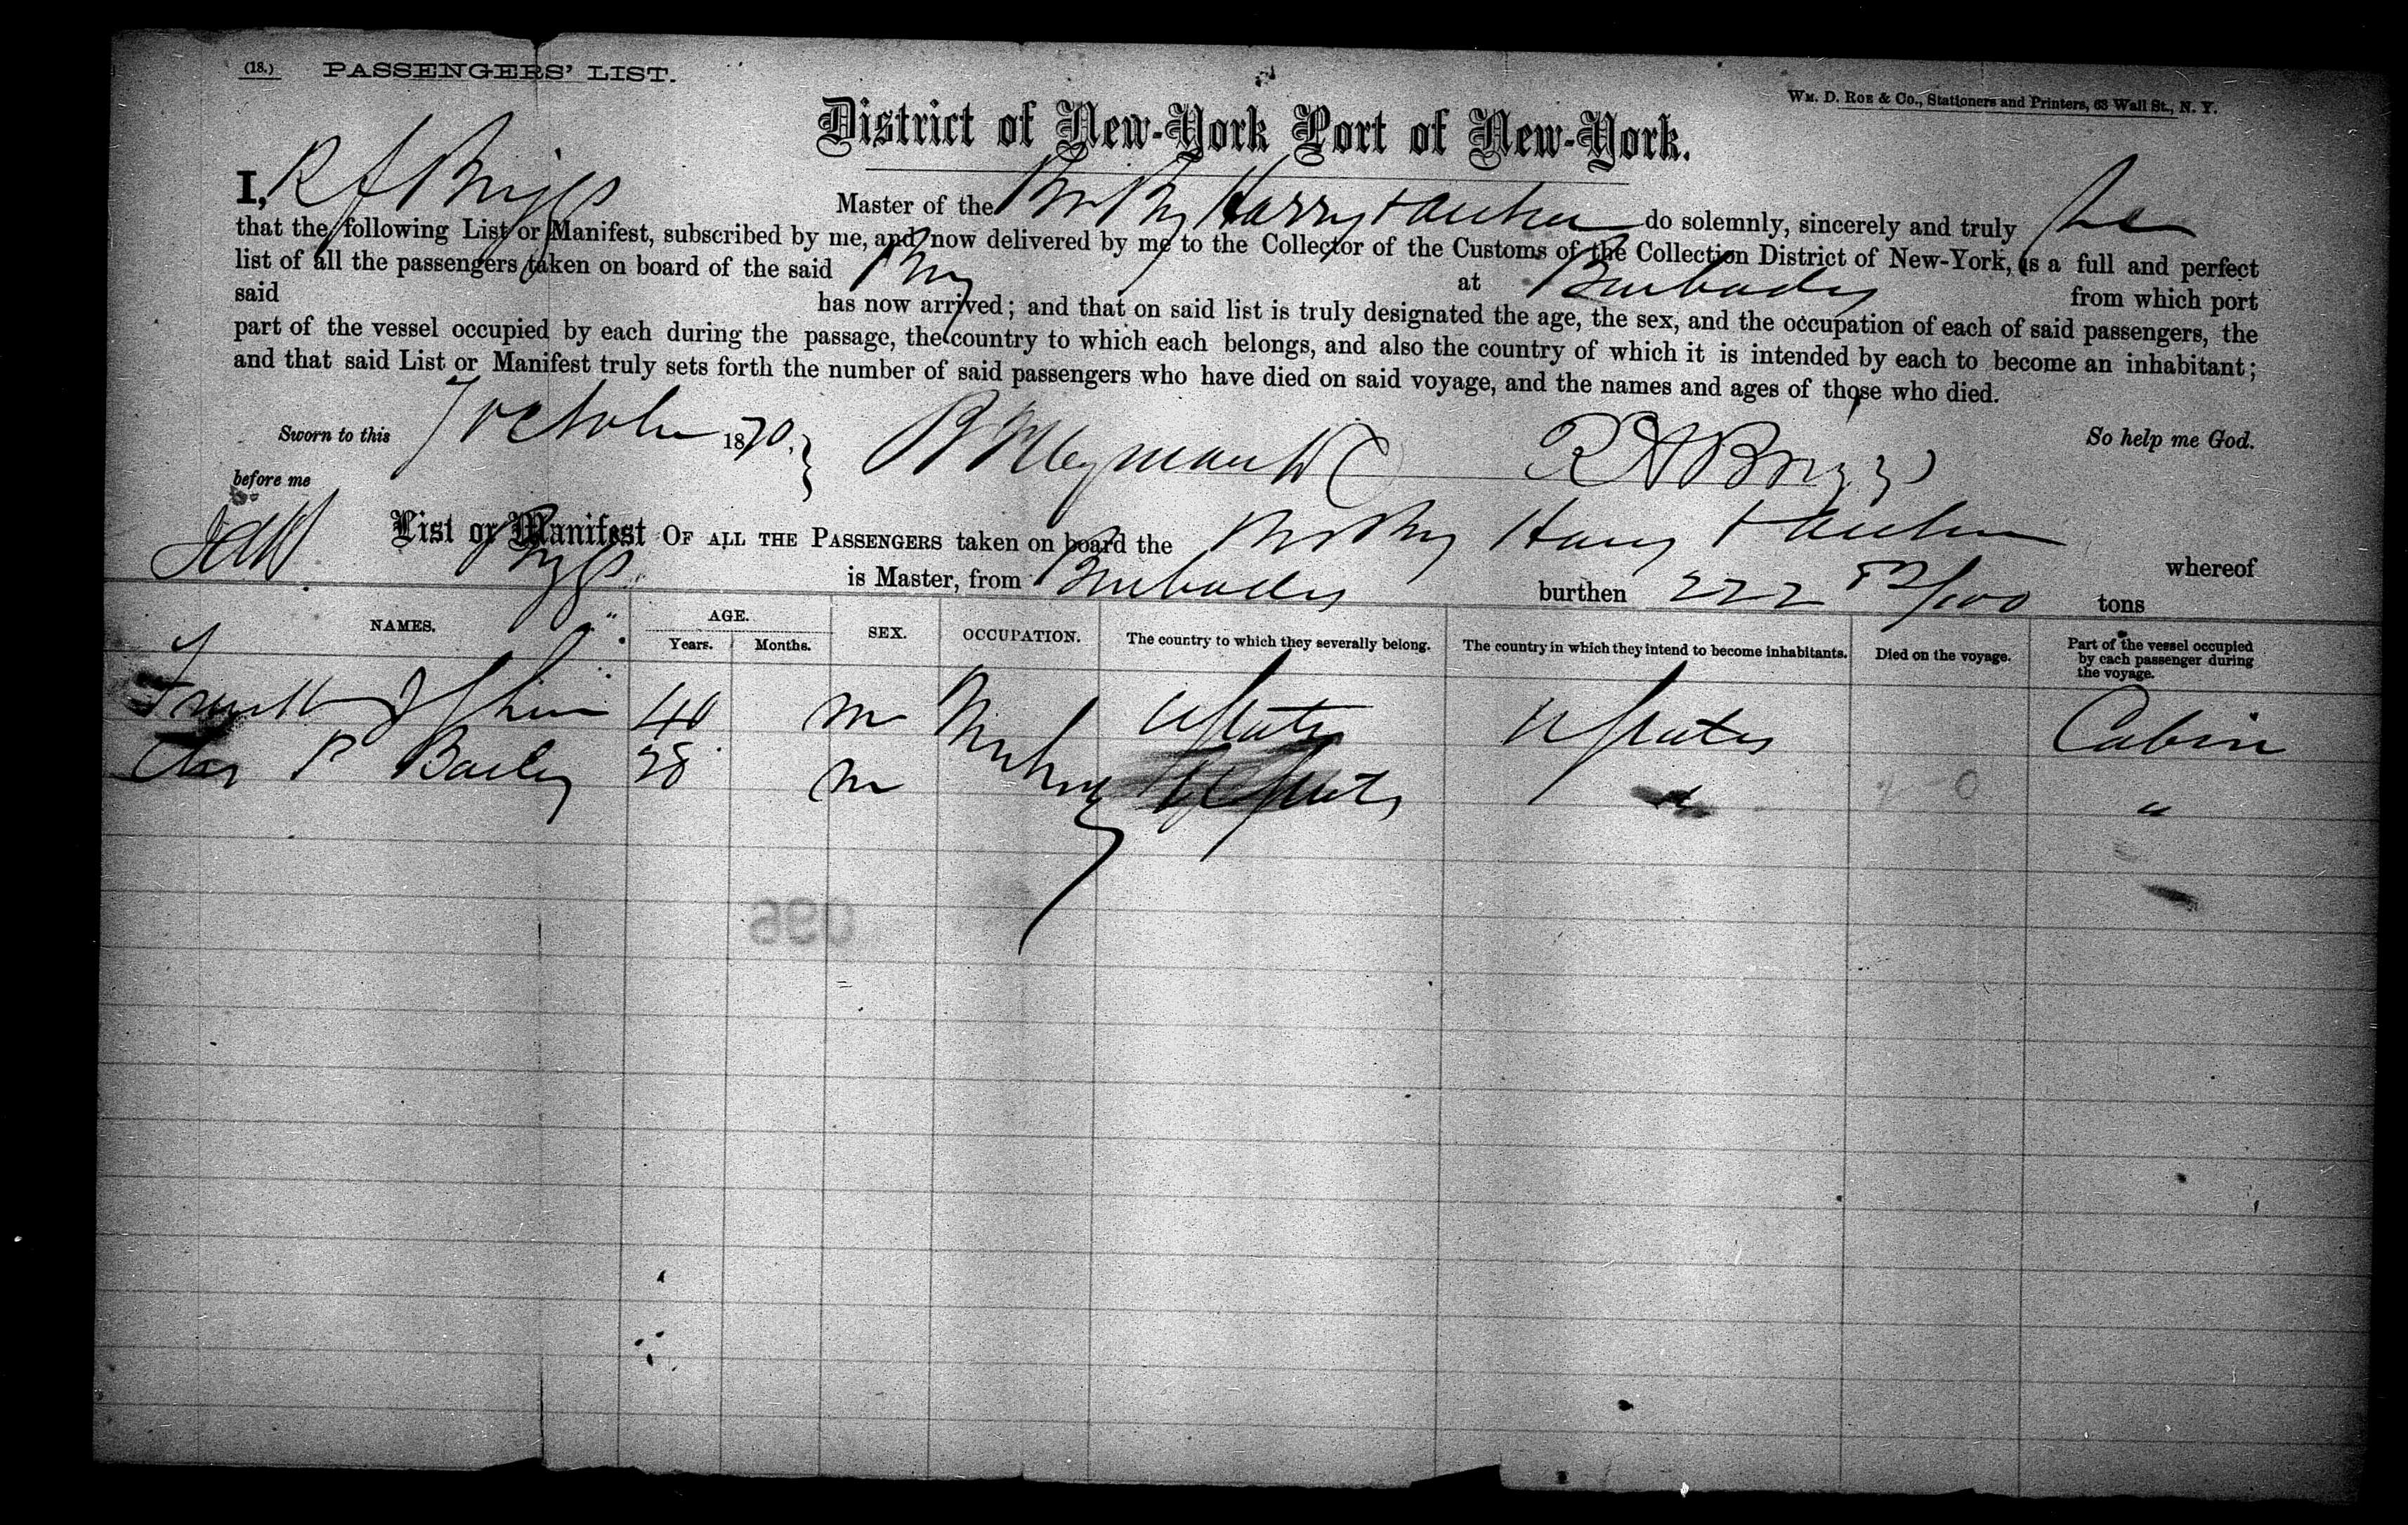 (18.) PASSENGERS' LIST.
WM. D. ROE & Co., Stationers and Printers, 63 Wall St., N. Y.
District of New-York Port of New-York.
I, R A Briggs Master of the Br Brg Harry do solemnly, sincerely and truly
that the following List or Manifest, subscribed by me, and now delivered by me to the Collector of the Customs of the Collection District of New-York, is a full and perfect
list of all the passengers taken on board of the said Brg at Barbados from which port
said has now arrived; and that on said list is truly designated the age, the sex, and the occupation of each of said passengers, the
part of the vessel occupied by each during the passage, the country to which each belongs, and also the country of which it is intended by each to become an inhabitant;
and that said List or Manifest truly sets forth the number of said passengers who have died on said voyage, and the names and ages of those who died.
Sworn to this 7 October 1870. R A Briggs So help me God.
before me
List or Manifest OF ALL THE PASSENGERS taken on board the Br Brg Harry whereof
Briggs is Master, from Barbados burthen 222 52/100 tons
NAMES. AGE. SEX. OCCUPATION. The country to which they severally belong. The country in which they intend to become inhabitants. Died on the voyage. Part of the vessel occupied by each passenger during the voyage.
Years. Months.
40 m U States U States Cabin
Chas P Bailey 28 m U States " "
096